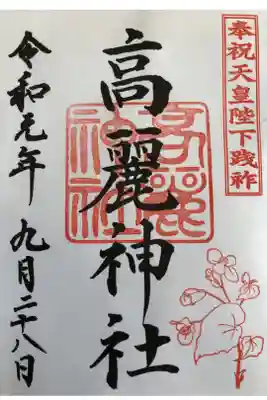 奉祝天皇陛下践祚
高麗神社
高麗神社
令和元年 九月二十八日